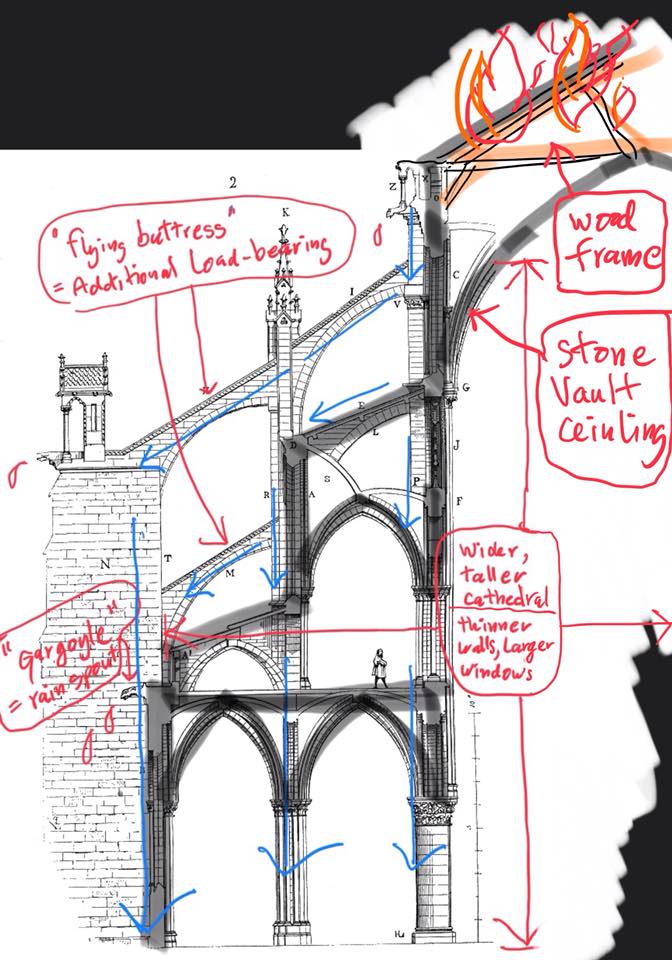 2
K
Z
X
O
"flying buttress"
= Additional Load-bearing
wood
frame
I
V
C
stone
Vault
ceinling
G
E
D
L
J
S
P
R
A
F
N
T
M
wider,
taller
cathedral
thinner
walls, Larger
windows
"Gargoyle"
= rain spout
A'
10
5
H